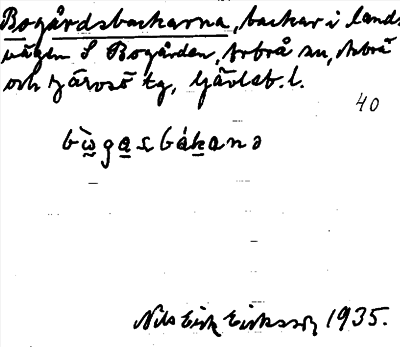 Bogårdsbackarna, backar i lands-
vägen S Bogården, Årbrå sn, Arbrå
och Järvsö tg, Gävlsb. l.
40
Nils Erik Eriksson 1935.